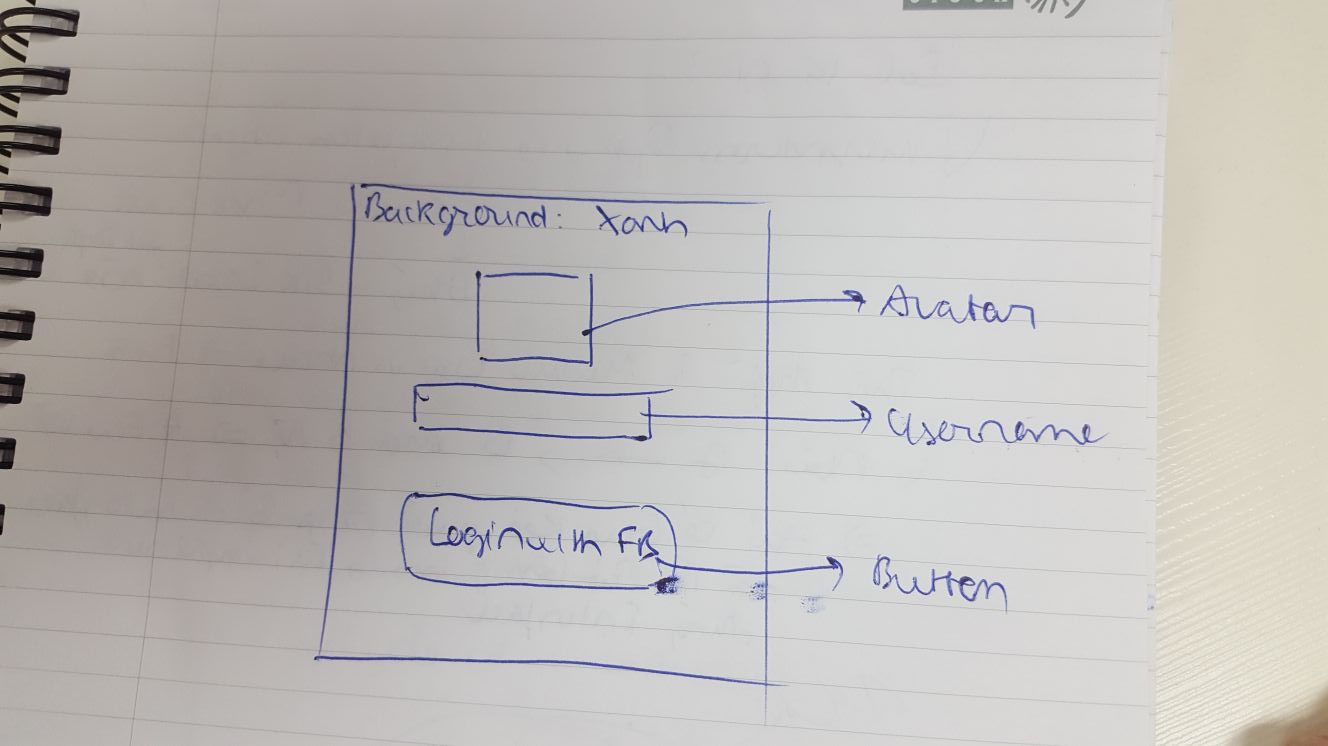 Background: Xanh
Avatar
Username
Login with FB
Button